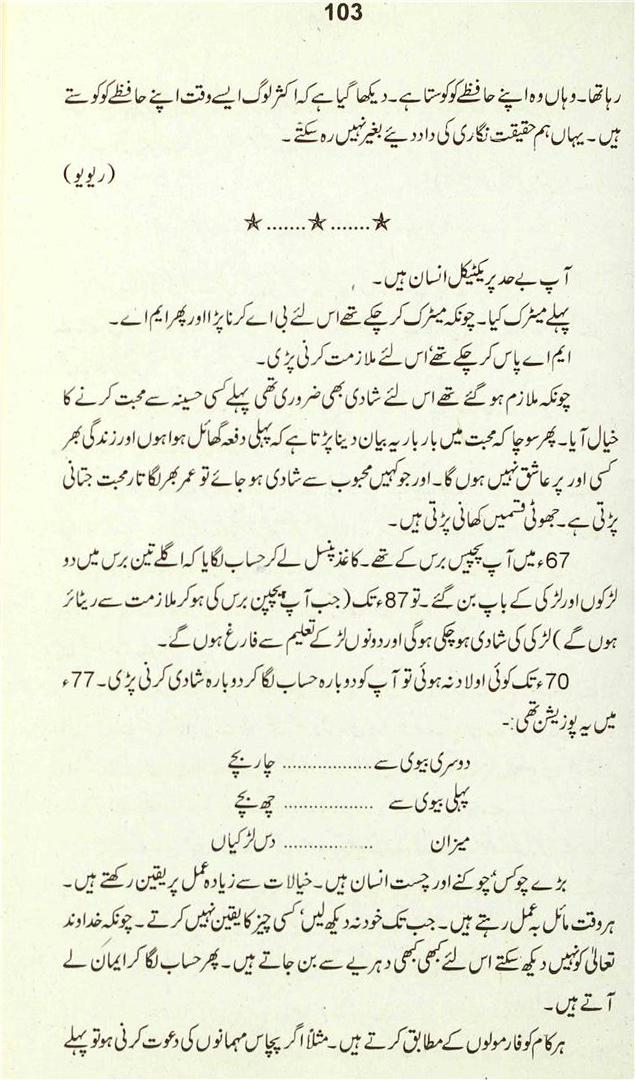 103
رہا تھا۔ وہاں وہ اپنے حافظے کو کوستا ہے۔ دیکھا گیا ہے کہ اکثر لوگ ایسے وقت اپنے حافظے کو کوستے
ہیں۔ یہاں ہم حقیقت نگاری کی داد دیئے بغیر نہیں رہ سکتے۔
(ریویو)
★.......★.......★
آپ بے حد پریکٹیکل انسان ہیں۔
پہلے میٹرک کیا۔ چونکہ میٹرک کر چکے تھے اس لئے بی اے کرنا پڑا اور پھر ایم اے۔
ایم اے پاس کر چکے تھے‘ اس لئے ملازمت کرنی پڑی۔
چونکہ ملازم ہو گئے تھے اس لئے شادی بھی ضروری تھی پہلے کسی حسینہ سے محبت کرنے کا
خیال آیا۔ پھر سوچا کہ محبت میں بار بار یہ بیان دینا پڑتا ہے کہ پہلی دفعہ گھائل ہوا ہوں اور زندگی بھر
کسی اور پر عاشق نہیں ہوں گا۔ اور جو کہیں محبوب سے شادی ہو جائے تو عمر بھر لگا تار محبت جتانی
پڑتی ہے۔ جھوٹی قسمیں کھانی پڑتی ہیں۔
67ء میں آپ پچیس برس کے تھے۔ کاغذ پنسل لے کر حساب لگایا کہ اگلے تین برس میں دو
لڑکوں اور لڑکی کے باپ بن گئے۔ تو 87ء تک (جب آپ پچپن برس کی ہو کر ملازمت سے ریٹائر
ہوں گے) لڑکی کی شادی ہو چکی ہو گی اور دونوں لڑکے تعلیم سے فارغ ہوں گے۔
70ء تک کوئی اولاد نہ ہوئی تو آپ کو دوبارہ حساب لگا کر دوبارہ شادی کرنی پڑی۔ 77ء
میں یہ پوزیشن تھی:-
دوسری بیوی سے ................ چار بچے
پہلی بیوی سے ................ چھ بچے
میزان ................ دس لڑکیاں
بڑے چوکس‘ چوکنے اور چست انسان ہیں۔ خیالات سے زیادہ عمل پر یقین رکھتے ہیں۔
ہر وقت مائل بہ عمل رہتے ہیں۔ جب تک خود نہ دیکھ لیں‘ کسی چیز کا یقین نہیں کرتے۔ چونکہ خداوند
تعالیٰ کو نہیں دیکھ سکتے اس لئے کبھی کبھی دہریے سے بن جاتے ہیں۔ پھر حساب لگا کر ایمان لے
آتے ہیں۔
ہر کام کو فارمولوں کے مطابق کرتے ہیں۔ مثلاً اگر پچاس مہمانوں کی دعوت کرنی ہو تو پہلے